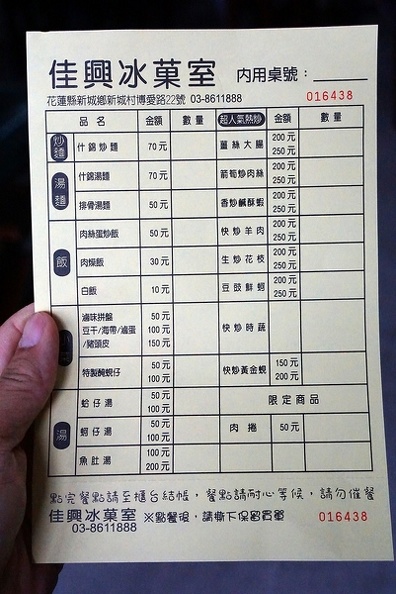 佳興冰菓室 內用桌號：
花蓮縣新城鄉新城村博愛路22號 03-8611888 016438
品名 金額 數量 超人氣熱炒 金額 數量
炒麵 什錦炒麵 70元 薑絲大腸 200元 250元
湯麵 什錦湯麵 70元 箭筍炒肉絲 200元 250元
排骨湯麵 50元 香炒鹹酥蝦 200元 250元
飯 肉絲蛋炒飯 50元 快炒羊肉 200元 250元
肉燥飯 30元 生炒花枝 200元 250元
白飯 10元 豆豉鮮蚵 200元 250元
滷味拼盤 50元
豆干/海帶/滷蛋 100元 快炒時蔬
/豬頭皮 150元
特製醃蜆仔 50元 100元 快炒黃金蜆 150元 200元
湯 蛤仔湯 50元 100元 限定商品
蚵仔湯 50元 100元 肉捲 50元
魚肚湯 100元 200元
點完餐點請至櫃台結帳，餐點請耐心等候，請勿催餐
佳興冰菓室 ※點餐後，請撕下保留頁單 016438
03-8611888